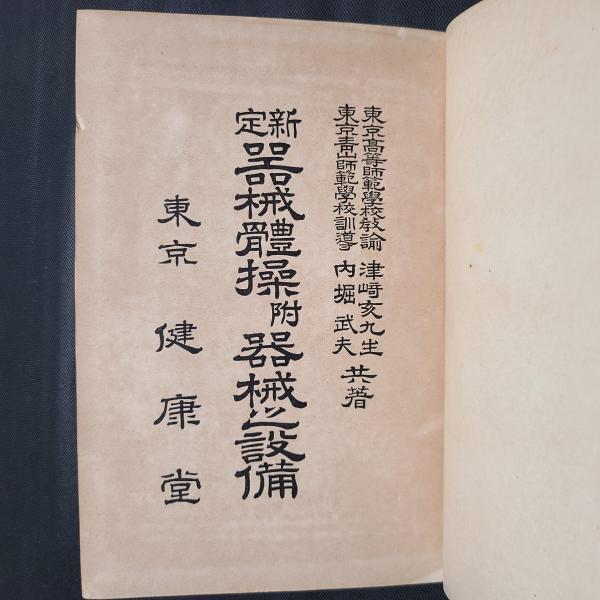 東京高等師範學校教諭 津﨑亥九生
東京青山師範學校訓導 內堀武夫
共著
新定 器械體操 附 器械之設備
東京 健康堂